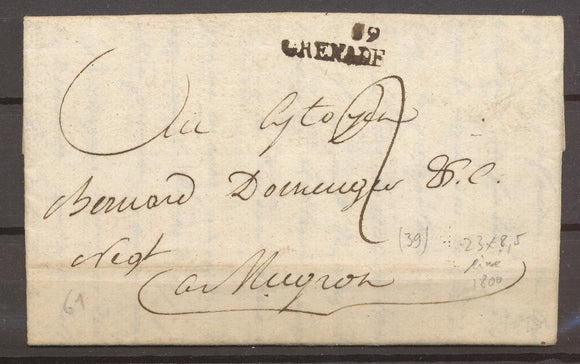 39
GRENADE
Au Citoyen
2
Bernard Domenger & C.
Negt
(39)
23x8,5
1800
a Mugron
61